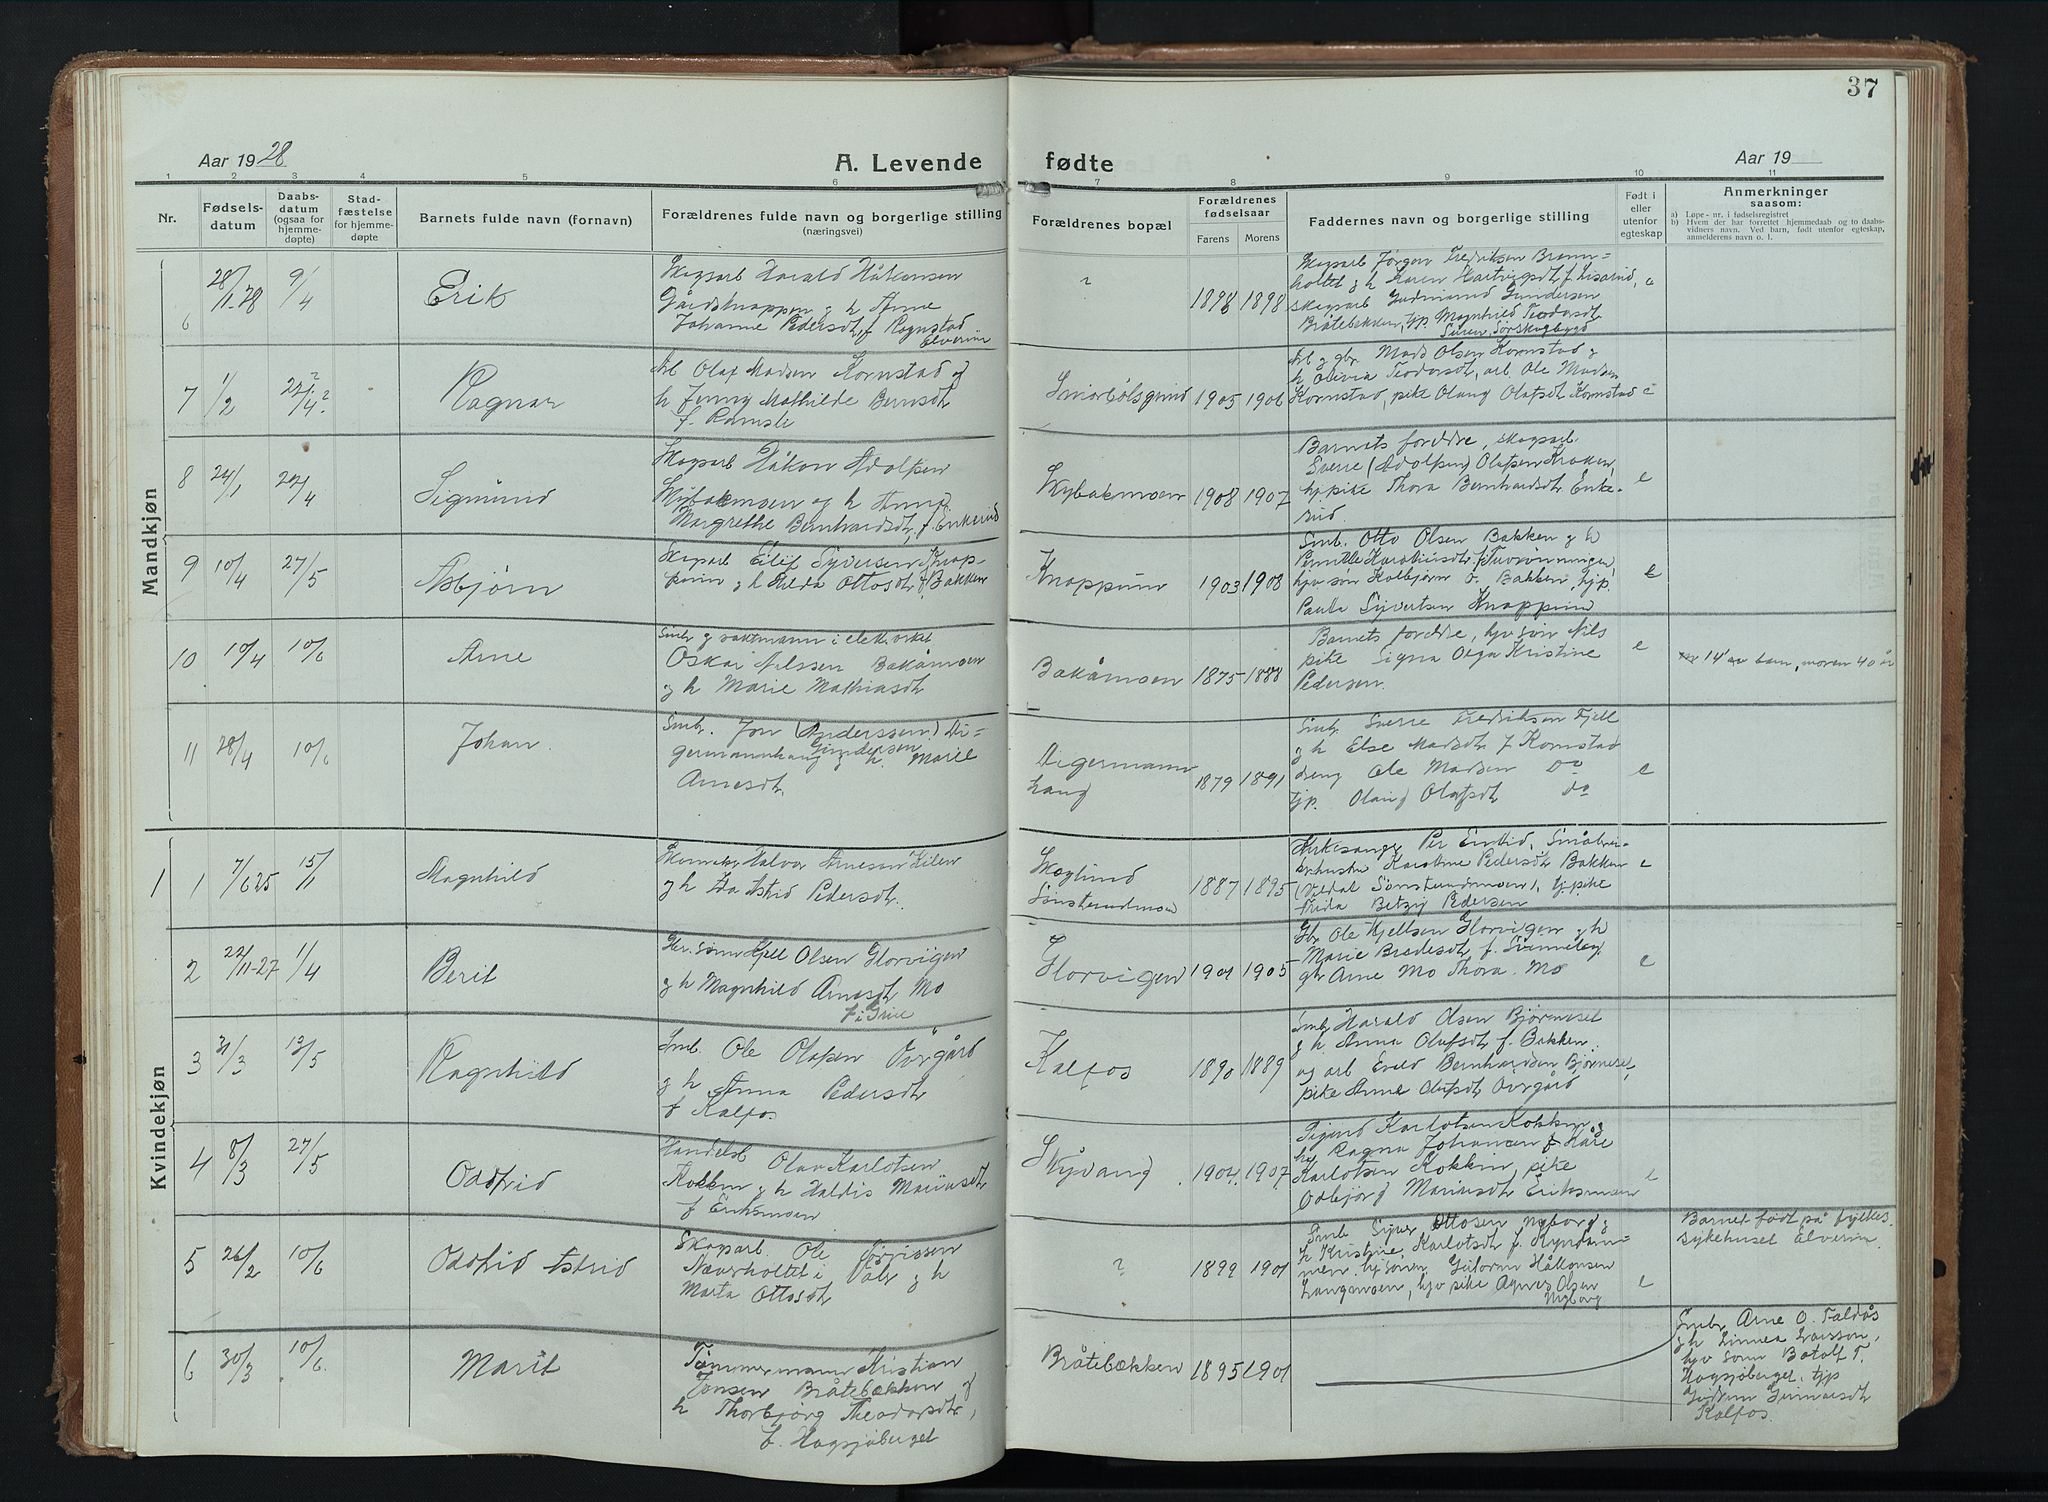 37
Aar 1928
A. Levende
fødte
Aar 19
1 2 3 4 5 6 7 8 9 10 11
Nr.
Fødsels-
datum
Daabs-
datum
(ogsaa for
hjemme-
døpte)
Stad-
fæstelse
for hjemme-
døpte
Barnets fulde navn (fornavn)
Forældrenes fulde navn og borgerlige stilling
(næringsvei)
Forældrenes bopæl
Forældrenes
fødselsaar
Farens Morens
Faddernes navn og borgerlige stilling
Født i
eller
utenfor
egteskap
Anmerkninger
saasom:
a) Løpe-nr. i fødselsregistret
b) Hvem der har forrettet hjemmedaab og to daabs-
vidners navn. Ved barn, født utenfor egteskap,
anmelderens navn o. l.
Mandkjøn
6 28/11-28 9/4 Erik
Skogsarb Harald Håkonsen
Gårdsknappen g h Arne
Johanne Pedersdt, f Rognstad
Elverum
? 1898 1898
Skogsarb Jørgen Fredriksen Brenn-
holtet g h Karen Hartvigsdt f. Lisarud, e
skogsarb Gudmund Gundersen
Bråtebækken, tjp. Magnhild Teodorsdt
Søren, Sørskogbygd
7 1/2 22/4 ? ? Ragnar
Arb Olaf Madsen Kornstad g
h Jenny Mathilde Berntsdt
f. Ramsli
Smørbølsgrind 1905 1906
Arb g gbr Mads Olsen Kornstad g
h Olivia Teodorsdt, arb Ole Madsen
Kornstad, pike Olaug Olafsdt Kornstad e
8 24/1 29/4 Sigmund
Skogsarb Håkon Adolfsen
Skybakmoen og h Anna
Margrethe Bernhardsdt. f Enkerud
Skybakmoen 1908 1907
Barnets foreldre, skogsarb.
Sverre (Adolfsen) Olafsen Kroken,
hj.pike Thora Bernhardsdt Enke- e
rud.
9 10/4 27/5 Asbjørn
Skogsarb Eilif Syversen Knap-
perin g h Hilda Ottosdt f Bakken
Knappurn 1903 1908
Smb. Otto Olsen Bakken g h
Pernille Karoliusdt. f Tuvrønningen,
hjv søn Kolbjørn O. Bakken, hjp. e
Paula Syvertsen Knappurn
10 10/4 10/6 Arne
Smbr g vaktmann i elekt. virket
Oskar Nilssen Bakåmoen
g h Marie Mathiasdt
Bakåmoen 1875 1888
Barnets foreldre, hjv søn Nils
pike Signa Olga Kristine
Pedersen. e
14de barn, moren 40 år
11 28/4 10/6 Johan.
Smb. Jon (Anderssen) Di-
germannhaug Gundersen g h. Marie
Arnesdt.
Digermann
haug 1879 1891
Smb Sverre Fredriksen Fjell
g h Else Madsdt f Kornstad
dreng Ole Madsen do e
tjp. Olaug Olafsdt do
Kvindekjøn
1 1 7/6 25 15/1 Magnhild
Skomaker Halvor Arnesen Kilen
g h Ida Astrid Pedersdt.
Skoglund
Sønsterudmoen 1887 1895
Kirkesanger Per Enstid, Småbru-
kerhustru Karoline Pedersdt Bakken e
(Uldal Sønsterudmoen), tj.pike
Frida Betzy Pedersen
2 22/11-27 1/4 Berit
Gbr. sønn Kjell Olsen Glorvigen
g h Magnhild Arnesdt Mo
f i Grue
Glorvigen 1901 1905
Gbr Ole Kjellsen Glorvigen g h
Marie Bredesdt f. Svenneby
gbr Arne Mo Thora Mo e
3 31/3 13/5 Ragnhild
Smb. Ole Olafsen Øvrgård
g h Anna Pedersdt
f Kalfos.
Kalfos 1890 1889
Smbr Harald Olsen Bjørneset
g h. Anna Olafsdt f. Bakken.
og arb Evald Bernhardsen Bjørneset,
pike Anne Olafsdt Øvrgård
4 8/3 27/5 Oddfrid
Handelsb Olav Karlotsen
Kokkin g h Haldis Mariusdt
f Eriksmoen
Skyvang 1904. 1907.
Sigurd Karlotsen Kokkin g
h Ragna Johansen f Kåre
Karlotsen Kokkin, pike
Oddbjørg Mariusdt Eriksmoen e
5 26/2 10/6 Oddfrid Astrid
Skogsarb. Ole Jørgissen
Næverholtet i Våler g h
Marta Ottosdt
? 1899 1901
Smbr Syver Ottosen Nyborg g
h Kristine Karlotsdt f. Kynndam-
men. hj sønn Guttorm Håkonsen
Langmoen, hjv pike Agnes Olsen e
Nyborg
Barnet født på fylkes
sykehuset Elverum.
6 30/3 10/6 Marit
Tømmermann Kristian
Jonsen Bråtebækken g
h Thorbjørg Theodorsdt,
f. Hagsjøberget
Bråtebækken 1895 1901
Smbr Arne O. Faldås
g h Linnea Larsson,
hjv sønn Botolf T.
Hagsjøberget, tjp
Gudrun Gunnarsdt
Kalfos.